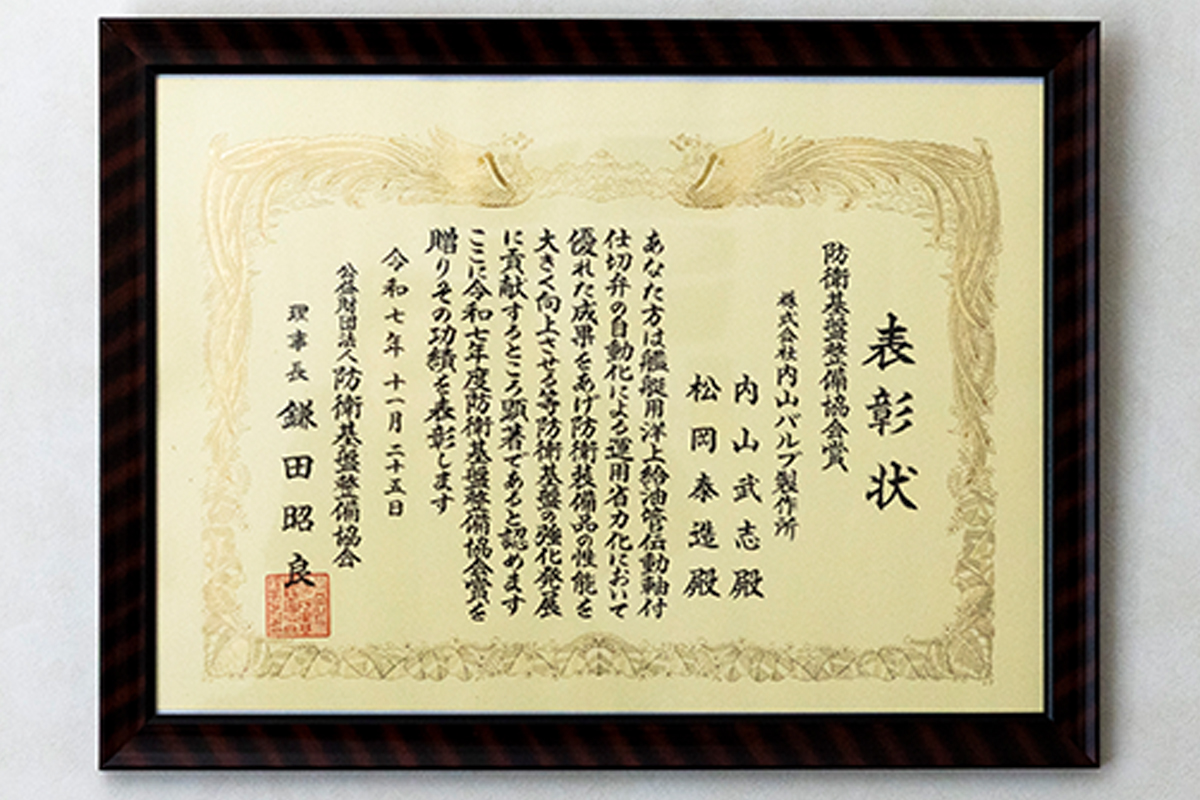 表彰状
防衛基盤整備協会賞
株式会社内山バルブ製作所
内山武志殿
松岡泰造殿
あなた方は艦艇用洋上給油管伝動軸付
仕切弁の自動化による運用省力化において
優れた成果をあげ防衛装備品の性能を
大きく向上させる等防衛基盤の強化発展
に貢献するところ顕著であると認めます
ここに令和七年度防衛基盤整備協会賞を
贈りその功績を表彰します
令和七年十一月二十五日
公益財団法人防衛基盤整備協会
理事長 鎌田昭良